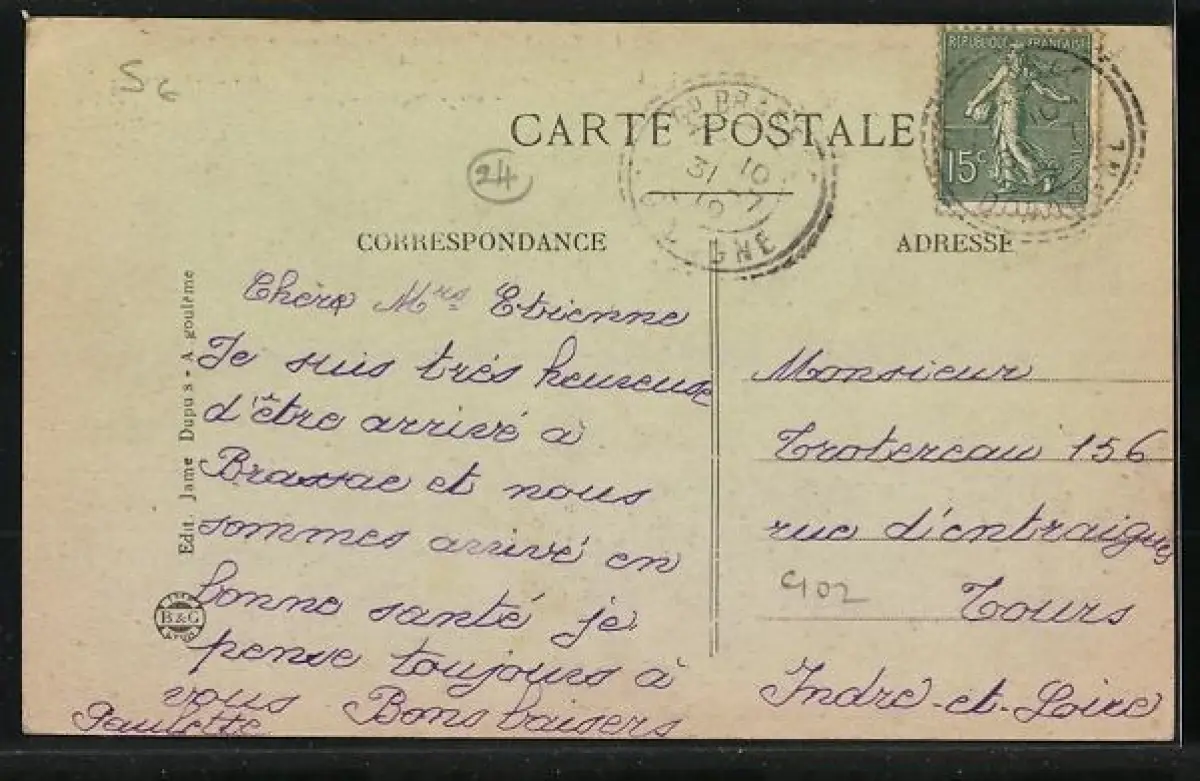 56
RÉPUBLIQUE FRANÇAISE
15c
CARTE POSTALE
24
31 10
CORRESPONDANCE
ADRESSE
Chère Mrs Etienne
Je suis très heureuse
d'être arrivé à
Brassac et nous
sommes arrivé en
bonne santé je
pense toujours à
vous Bons baisers
Paulette
Monsieur
Trotereau 156
rue d'entraigues
902
Tours
Indre-et-Loire
Edit. Jame Dupuis - Agoulème
B&G